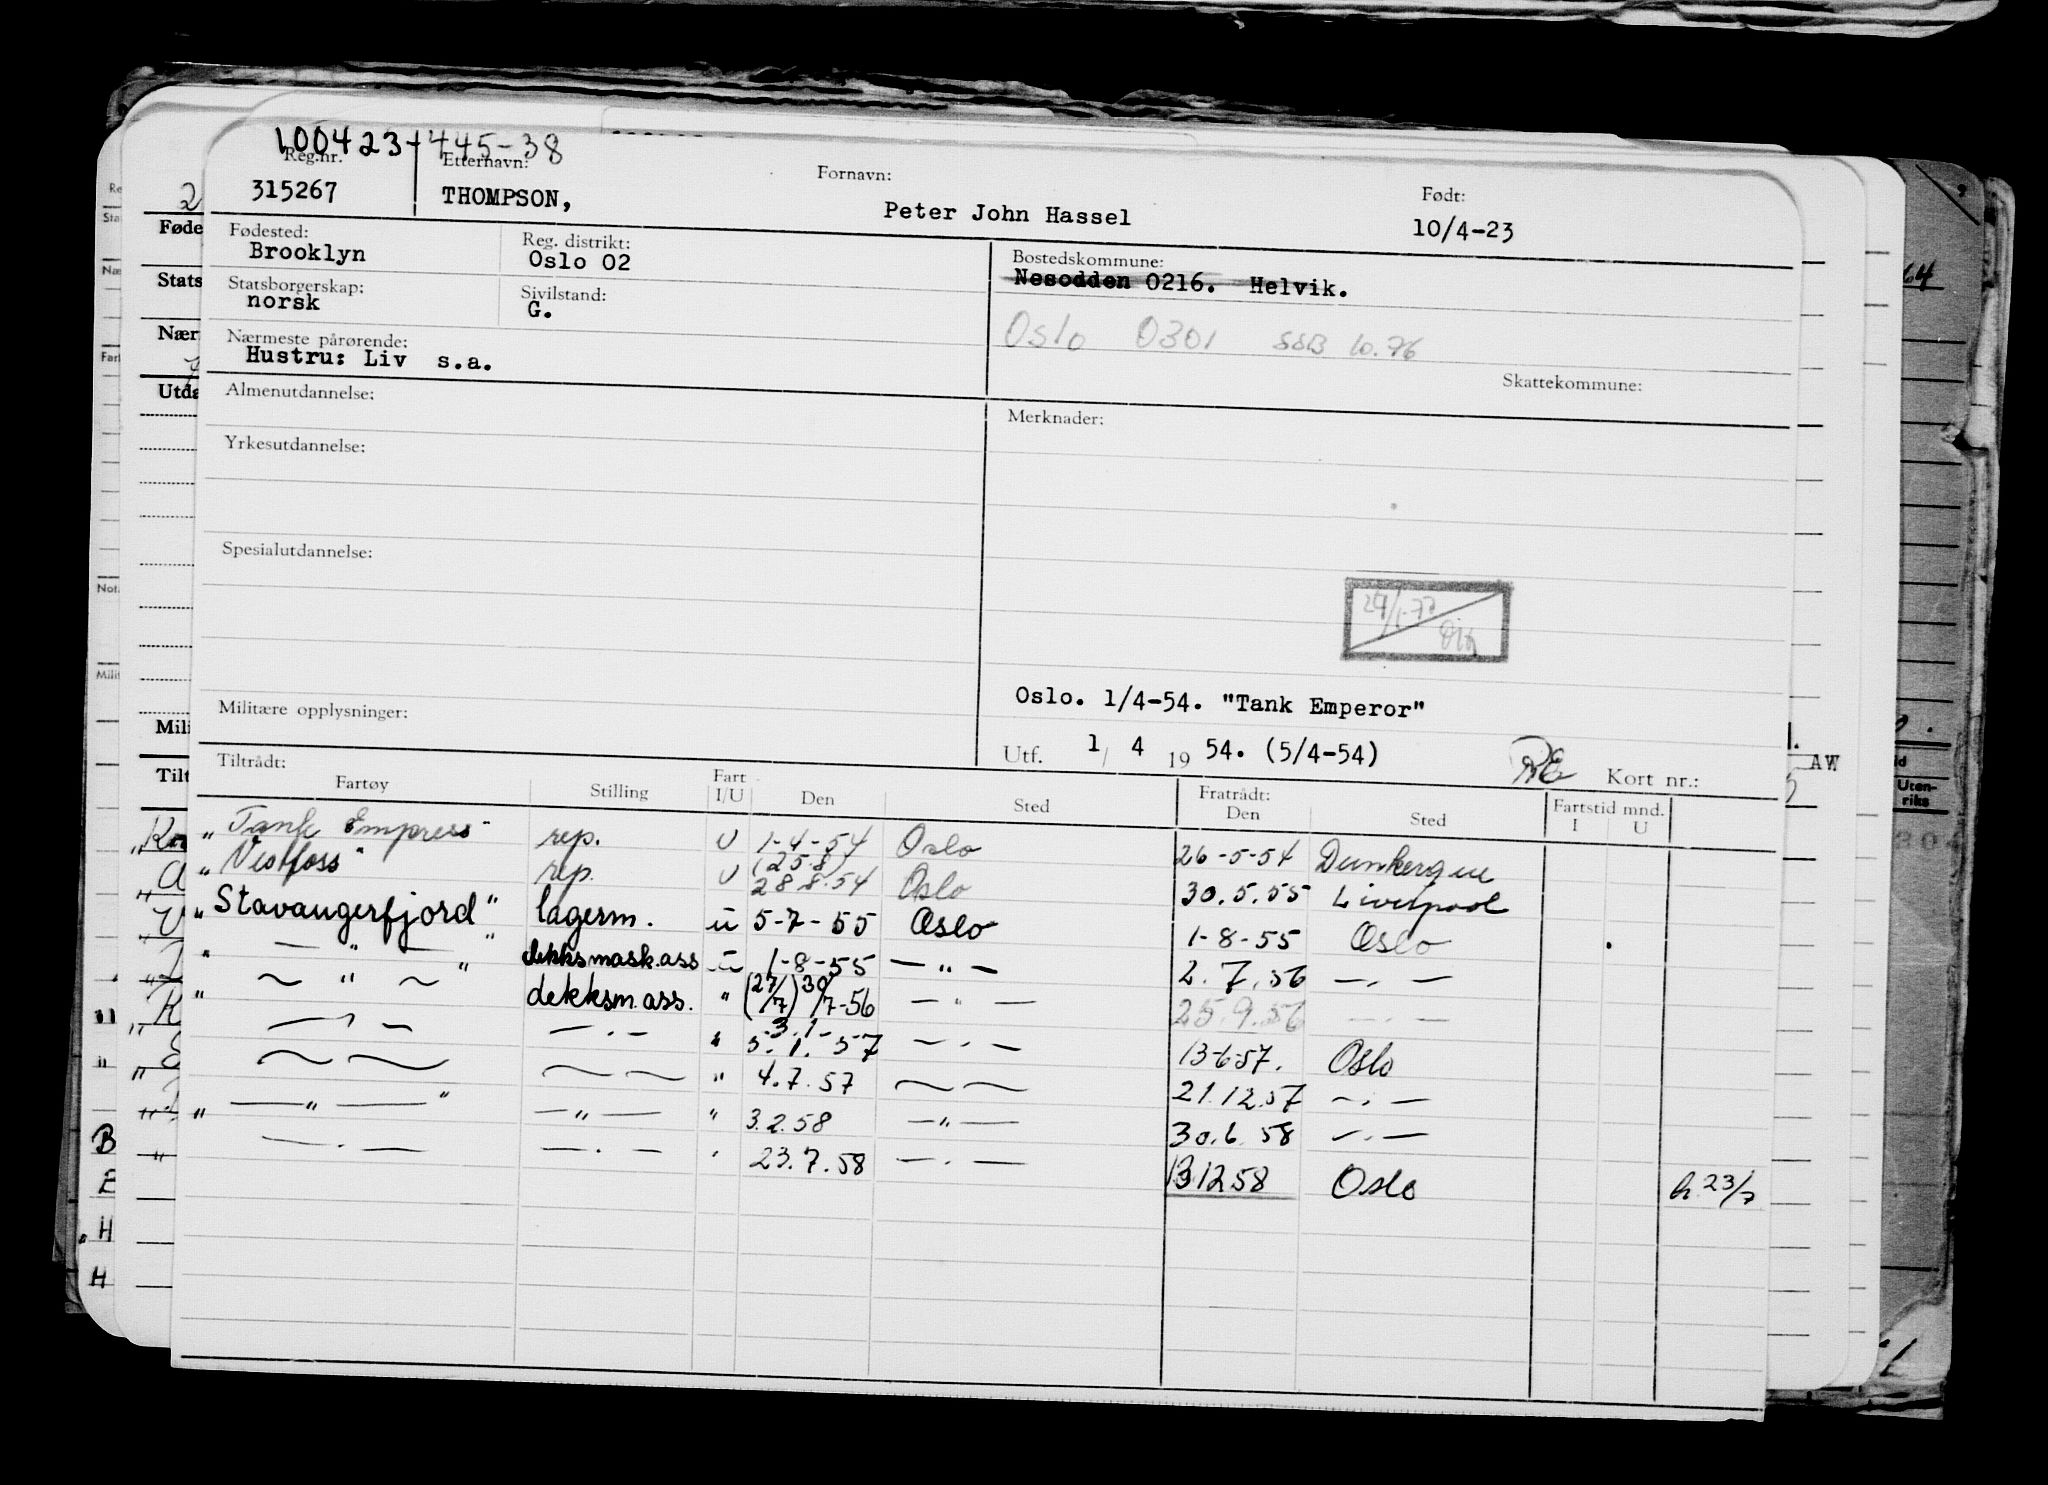 100423+445-38
Reg.nr. Etternavn: Fornavn: Født:
315267 THOMPSON, Peter John Hassel 10/4-23
Fødested: Reg. distrikt: Bostedskommune:
Brooklyn Oslo 02 Nesodden 0216. Helvik.
Statsborgerskap: Sivilstand:
norsk G.
Oslo 0301 SSB 10.76
Nærmeste pårørende:
Hustru: Liv s.a.
Skattekommune:
Almenutdannelse: Merknader:
Yrkesutdannelse:
Spesialutdannelse:
Oslo. 1/4-54. "Tank Emperor"
Militære opplysninger:
Utf. 1/ 4 19 54. (5/4-54) Kort nr.:
Tiltrådt: Fratrådt:
Fartøy Stilling Fart I/U Den Sted Den Sted Fartstid mnd. I U
"Tank Empress" rep. U 1-4-54 Oslo 26-5-54 Dunkerque
"Vestfoss" rep. U (25.8) 28.8.54 Oslo 30.5.55 Liverpool
"Stavangerfjord" lagerm. u 5-7-55 Oslo 1-8-55 Oslo
" — " — " dekksmask.ass u 1-8-55 — " — 2.7.56 — . —
" ~ " ~ " dekksm.ass. " (27/7) 30/7-56 — " — 25.9.56 — . —
— " — — . — " 3.1- 5.1.-57 — . — 13-6-57. Oslo
~ ~ ~ ~ " 4.7.57 ~ ~ 21.12.57 ~ . —
" — " — " — " — " 3.2.58 — " — 30.6.58 — . —
— . — — . — " 23.7.58 — . — 131258 Oslo h. 23/7